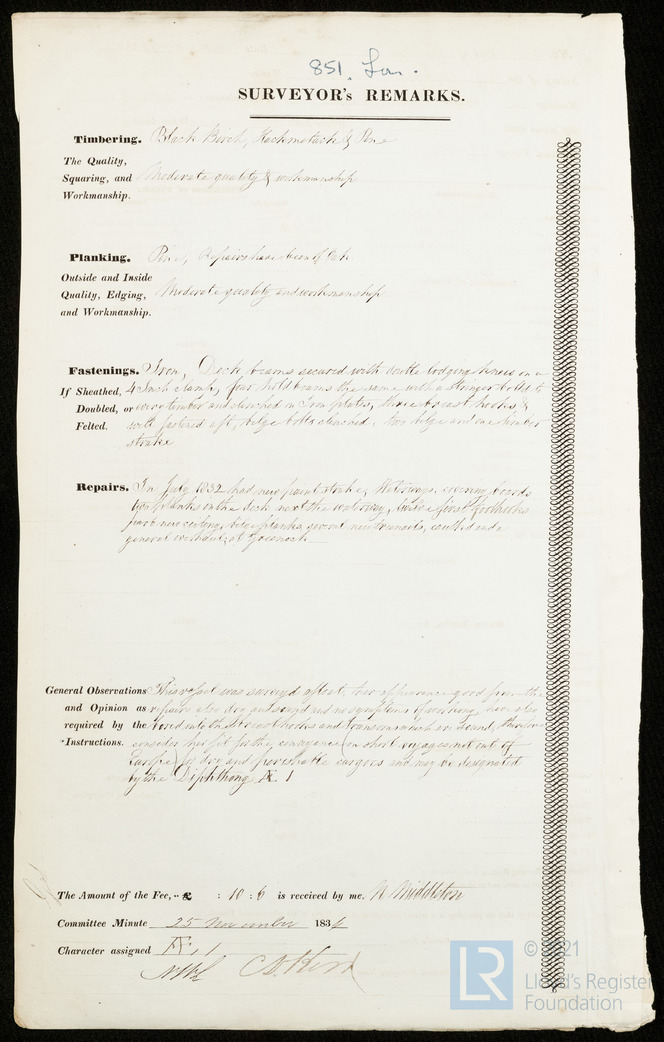 851. Lon.
SURVEYOR's REMARKS.
Timbering. Black Birch, Hackmatack & Pine
The Quality,
Squaring, and Moderate quality & workmanship
Workmanship.
Planking. Pine, Repairs have been of Oak
Outside and Inside
Quality, Edging, Moderate quality and workmanship
and Workmanship.
Fastenings. Iron, Deck beams secured with double lodging knees on a
If Sheathed, 4 Inch clamp, four hold beams the same with a Stringer bolted to
Doubled, or every timber and clenched on Iron plates, three breast hooks &
Felted. well fastened aft, bilge bolts clenched. two bilge and one limber
strake
Repairs. In July 1832 had new paint strake, Waterways, covering boards
two planks on the deck next the waterway, first Foothooks
part new ceiling, bilge planks, several new treenails, caulked and a
general overhaul, at Greenock
General Observations This vessel was surveyed afloat, her appearance good from the
and Opinion as repairs also dry and sound and no symptoms of working, have also
required by the bored into the breast hooks and transoms which are sound, therefore
Instructions. consider her fit for the conveyance (on short voyages not out of
Europe) of dry and perishable cargoes and may be designated
by the Diphthong Æ 1
The Amount of the Fee, £ : 10 : 6 is received by me. N Middleton
Committee Minute 25 November 1834
Character assigned Æ 1
© 2021
LR Lloyd's Register
Foundation